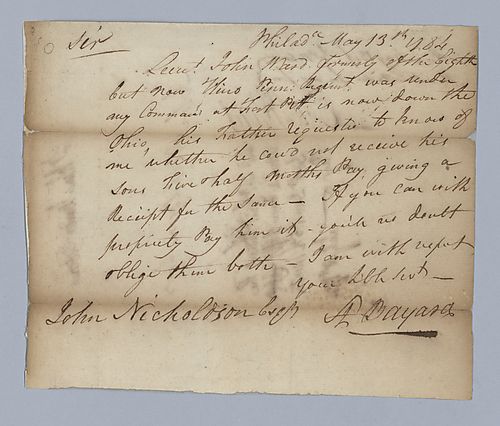 Philad.a May 13.th 1784.
Sir
Lieut. John Ward formerly of the Eighth
but now Third Penn: Regimt. was under
my Command at Fort Pitt is now down the
Ohio, his Father requests to know of
me whether he could not receive his
Sons five & half Months Pay, giving a
Receipt for the Same — If you can with
propriety Pay him it — you'll no doubt
oblige them both — I am with respect
Your Hble Servt —
John Nicholdson Esqr
Bayard